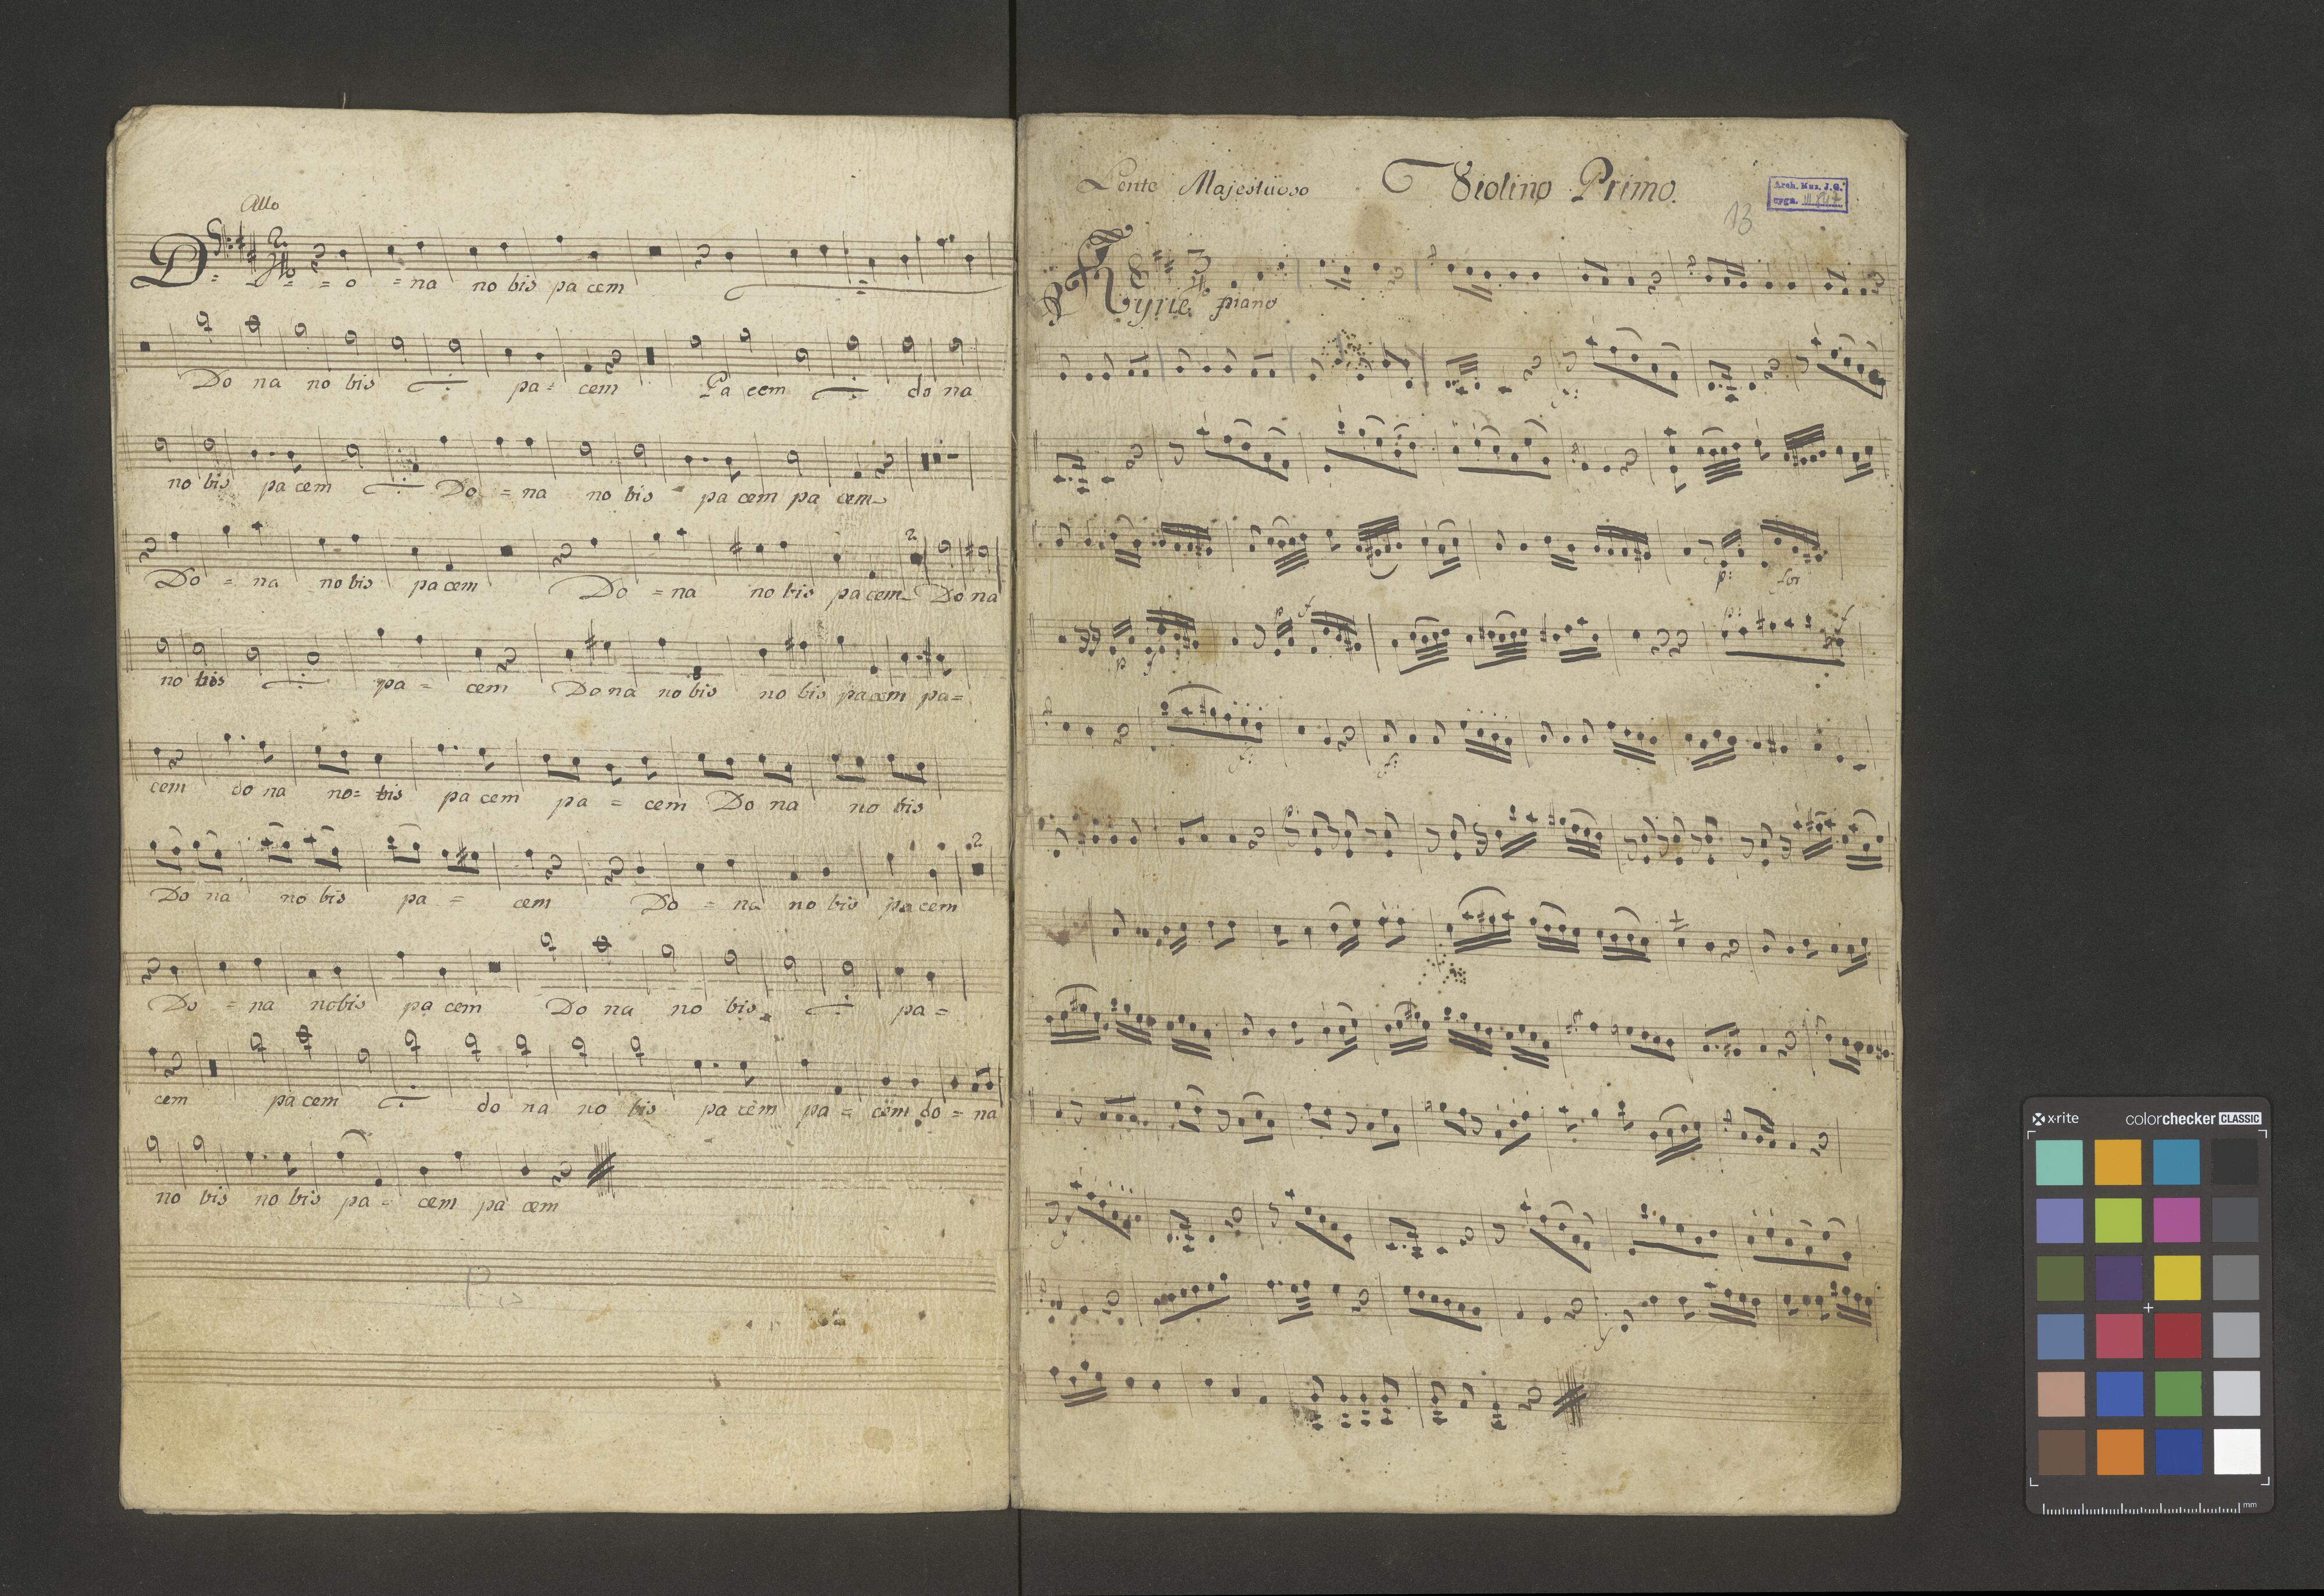 Allo
D = = = = o = na no bis pa cem
Do na no bis pa = cem Pa cem do na
no bis pa cem Do = na no bis pa cem pa cem
Do = na no bis pa cem Do = na no bis pa cem Do na
no bis pa = cem Do na no bis no bis pa cem pa =
cem do na no = bis pa cem pa = cem Do na no bis
Do na no bis pa = cem Do = na no bis pa cem
Do = na no bis pa cem Do na no bis pa =
cem pa cem do na no bis pa cem pa = cem do = na
no bis no bis pa = cem pa cem
Lente Majestuoso Violino Primo.
13
Arch. Muz. J. G.
sygn. III
Kyrie piano
p: for
p f p f p: f
f: f:
p:
f
f
x-rite colorchecker CLASSIC
mm